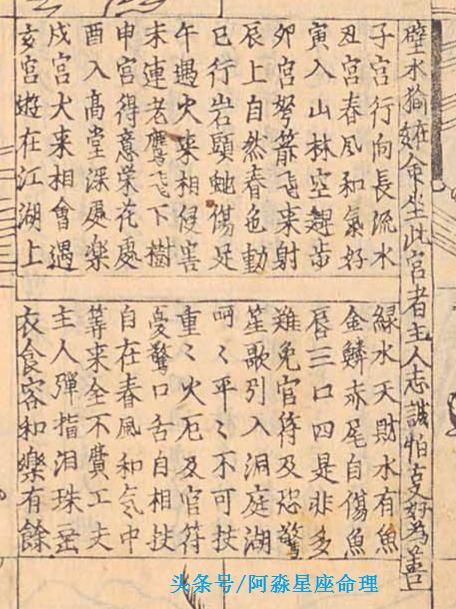 壁水㺄姙命坐此宮者主人志誠怕克好為善
子宮行向長流水
綠水天財水有魚
丑宮春风和氣好
金鱗赤尾自傷魚
寅入山林空趨步
唇三口四是非多
卯宮弩箭飛來射
難免官符及恐驚
辰上自然春色動
笙歌引入洞庭湖
巳行岩頭虵傷足
呵〻平〻不可扶
午遇火來相侵害
重〻火厄及官符
未連老鷹飛下樹
憂驚口舌自相扶
申宮得意榮花處
自在春風和气中
酉入高堂深處樂
等來全不費工夫
戌宮犬來相會遇
主人彈指泪珠垂
亥宮遊在江湖上
衣食客和樂有餘
头条号/阿淼星座命理